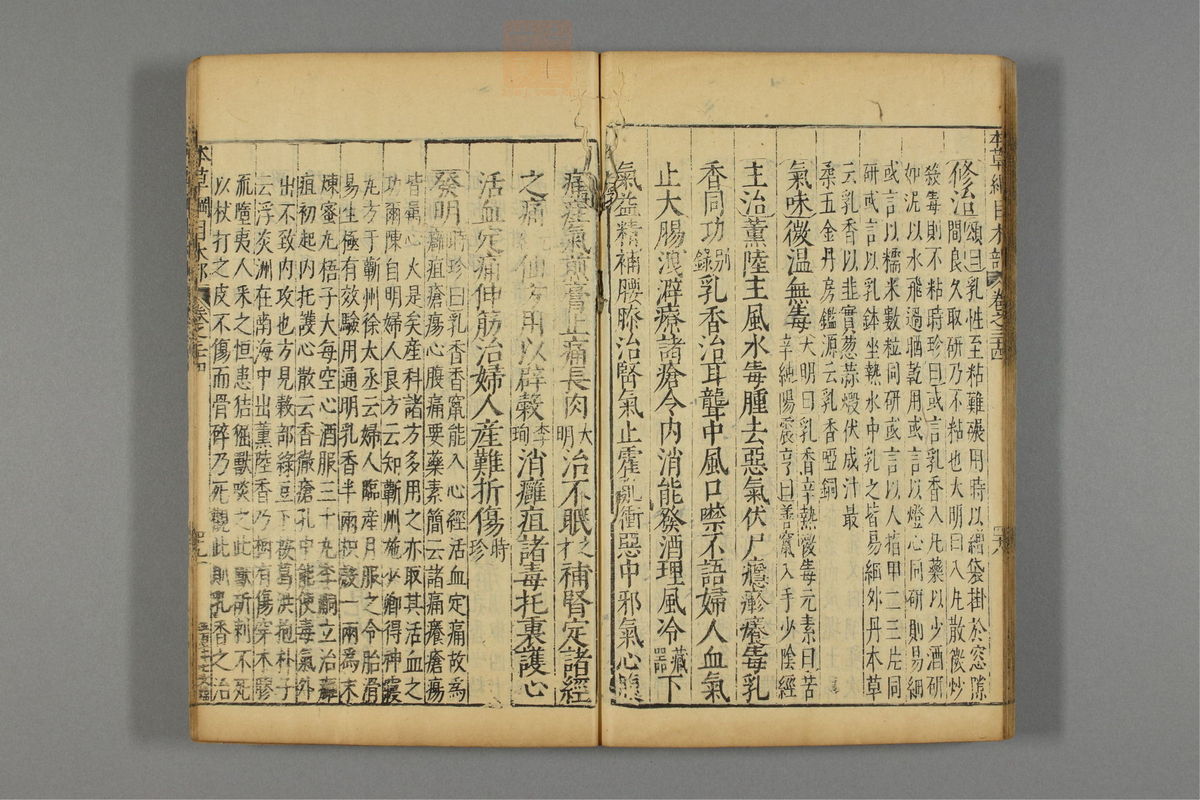 本草綱目木部 卷之三十四 四十八
修治頌曰乳性至粘難碾用時以繒袋掛於窓隙
間良久取研乃不粘也大明曰入丸散微炒
殺毒則不粘時珍曰或言乳香入丸藥以少酒研
如泥以水飛過晒乾用或言以燈心同研則易細
或言以糯米數粒同研或言以人指甲二三片同
研或言以乳鉢坐熱水中乳之皆易細外丹本草
云乳香以韭實葱蒜煅伏成汁最
柔五金丹房鑑源云乳香啞銅
氣味微温無毒大明曰乳香辛熱微毒元素曰苦
辛純陽震亨曰善竄入手少陰經
主治薰陸主風水毒腫去惡氣伏尸癮疹癢毒乳
香同功别錄乳香治耳聾中風口噤不語婦人血氣
止大腸洩澼療諸瘡令内消能發酒理風冷藏器下
氣益精補腰膝治腎氣止霍亂衝惡中邪氣心腹
痛疰氣煎膏止痛長肉大明治不眠之才補腎定諸經
之痛仙方用以辟穀李珣消癰疽諸毒托裏護心
活血定痛伸筋治婦人産難折傷時珍
發明時珍曰乳香香竄能入心經活血定痛故為
癰疽瘡瘍心腹痛要藥素簡云諸痛癢瘡瘍
皆屬心火是矣産科諸方多用之亦取其活血之
功爾陳自明婦人良方云知蘄州施少卿得神寢
丸方于蘄州徐太丞云婦人臨産月服之令胎滑
易生極有效驗用通明乳香半兩枳殼一兩為末
煉蜜丸梧子大每空心酒服三十丸李嗣立治癰
疽初起内托護心散云香徹瘡孔中能使毒氣外
出不致内攻也方見穀部綠豆下按葛洪抱朴子
云浮炎洲在南海中出薰陸香乃樹有傷穿木膠
流墮夷人采之恒患狤獸啖之此獸斫刺不死
以杖打之皮不傷而骨碎乃死觀此則乳香之治
本草綱目木部 卷之三十四